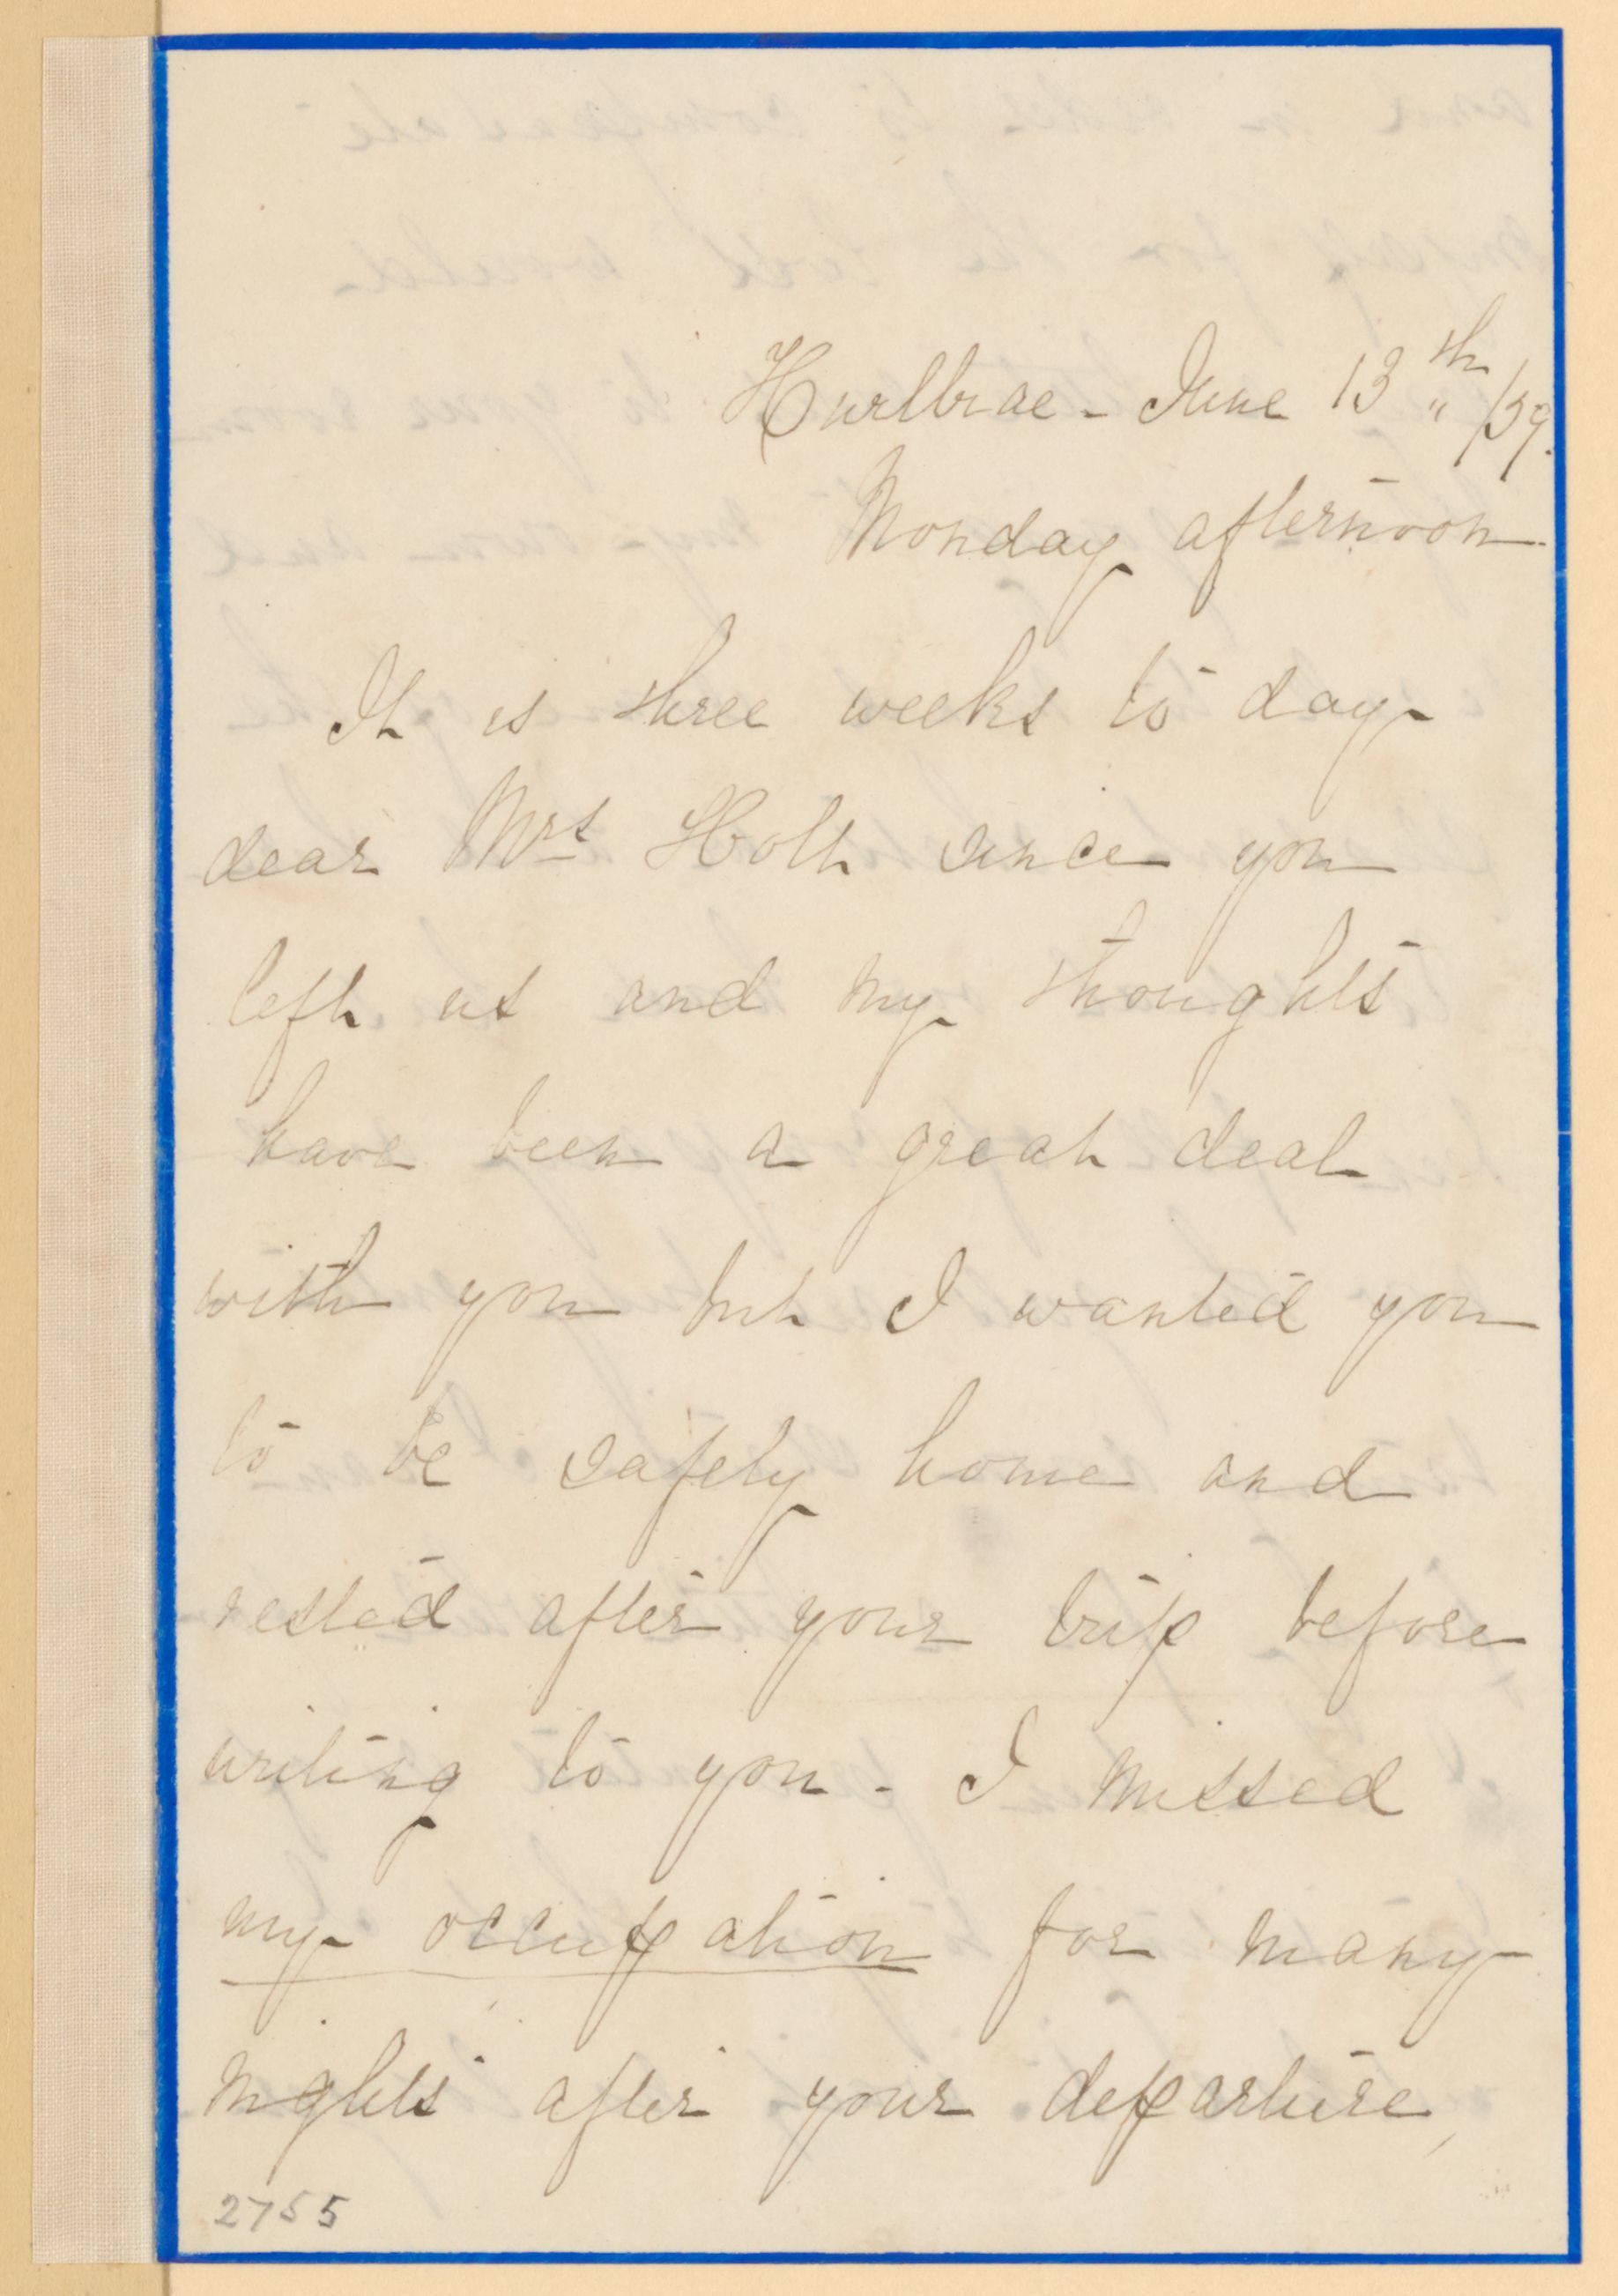 Hurlbrae - June 13th /59.
Monday afternoon
It is three weeks to day
dear Mrs Holt since you
left us and my thoughts
have been a great deal
with you but I wanted you
to be safely home and
rested after your trip before
writing to you - I missed
my occupation for many
nights after your departure,
2755